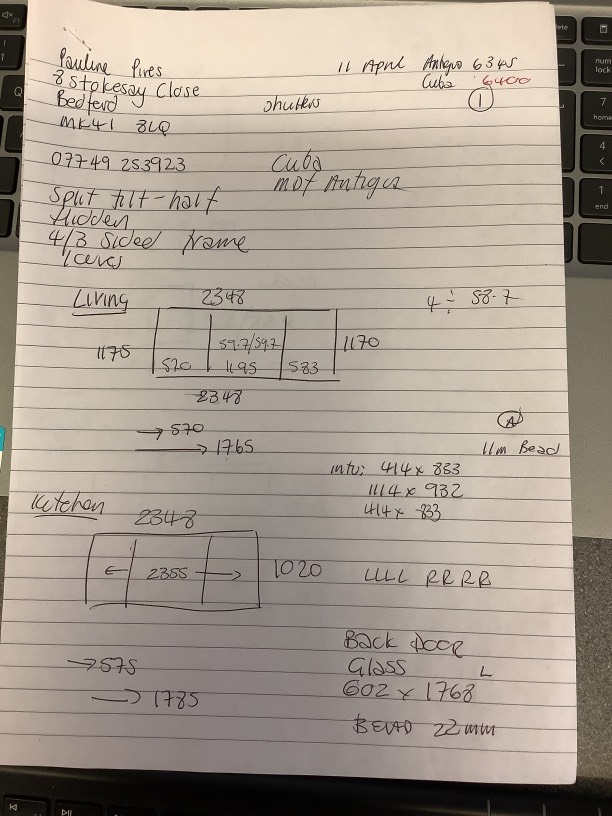 Pauline Pires
8 Stokesay Close
Bedford
MK41 8LQ
11 April Antigua 6345
Cuba 6400
1
Shutters
07749 253923
Cuba
MDF Antigua
Split tilt-half
Hidden
4/3 sided frame
Living 2348
4 ÷ 58.7
1175 570 59.7/59.7 1195 583 1170
2348
→ 570
→ 1765
A
11m Bead
414 x 833
1114 x 932
414 x 833
Kitchen
2348
← 2355 → 1020
LLLL RRRR
→ 575
→ 1785
Back Door
Glass L
602 x 1768
BEAD 22mm
num
lock
7
home
4
1
end